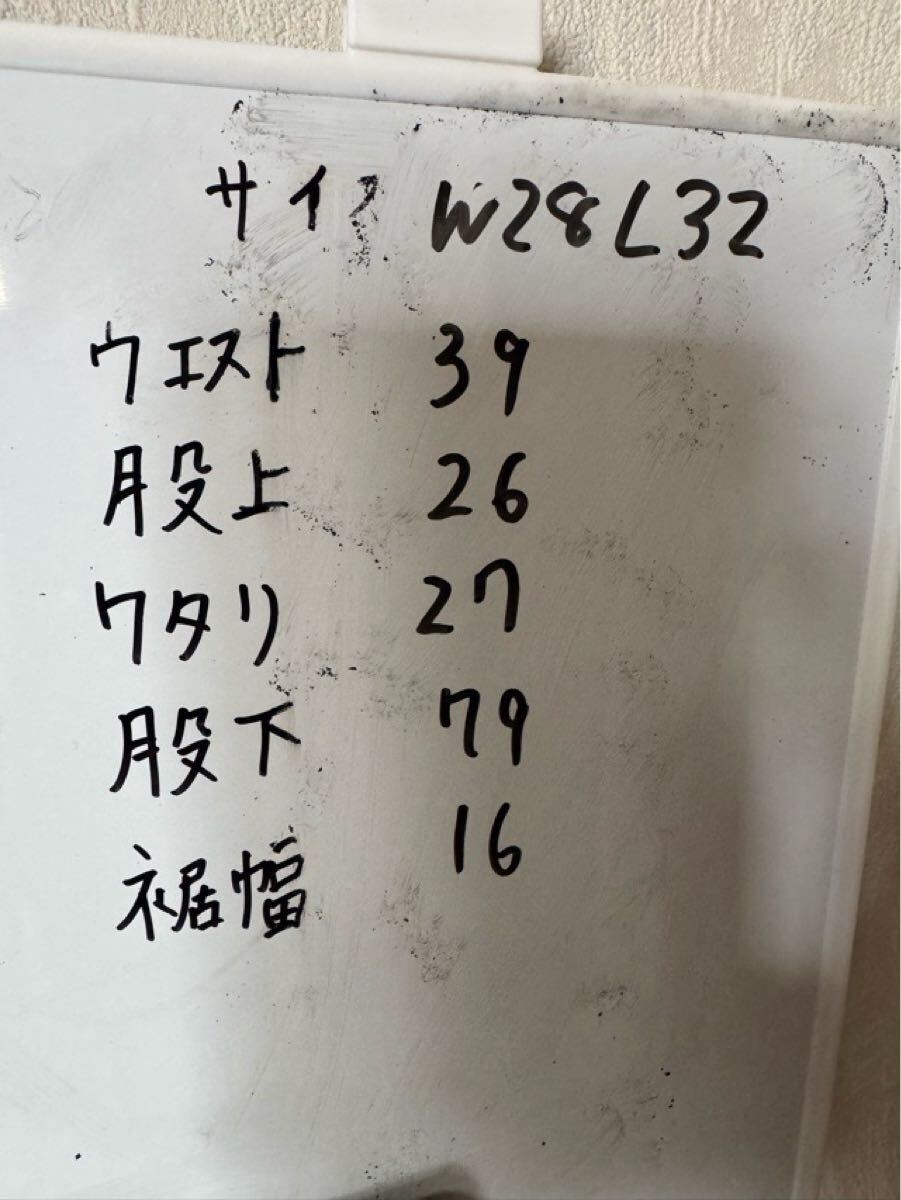 サイズ W28L32
ウエスト 39
股上 26
ワタリ 27
股下 79
裾幅 16